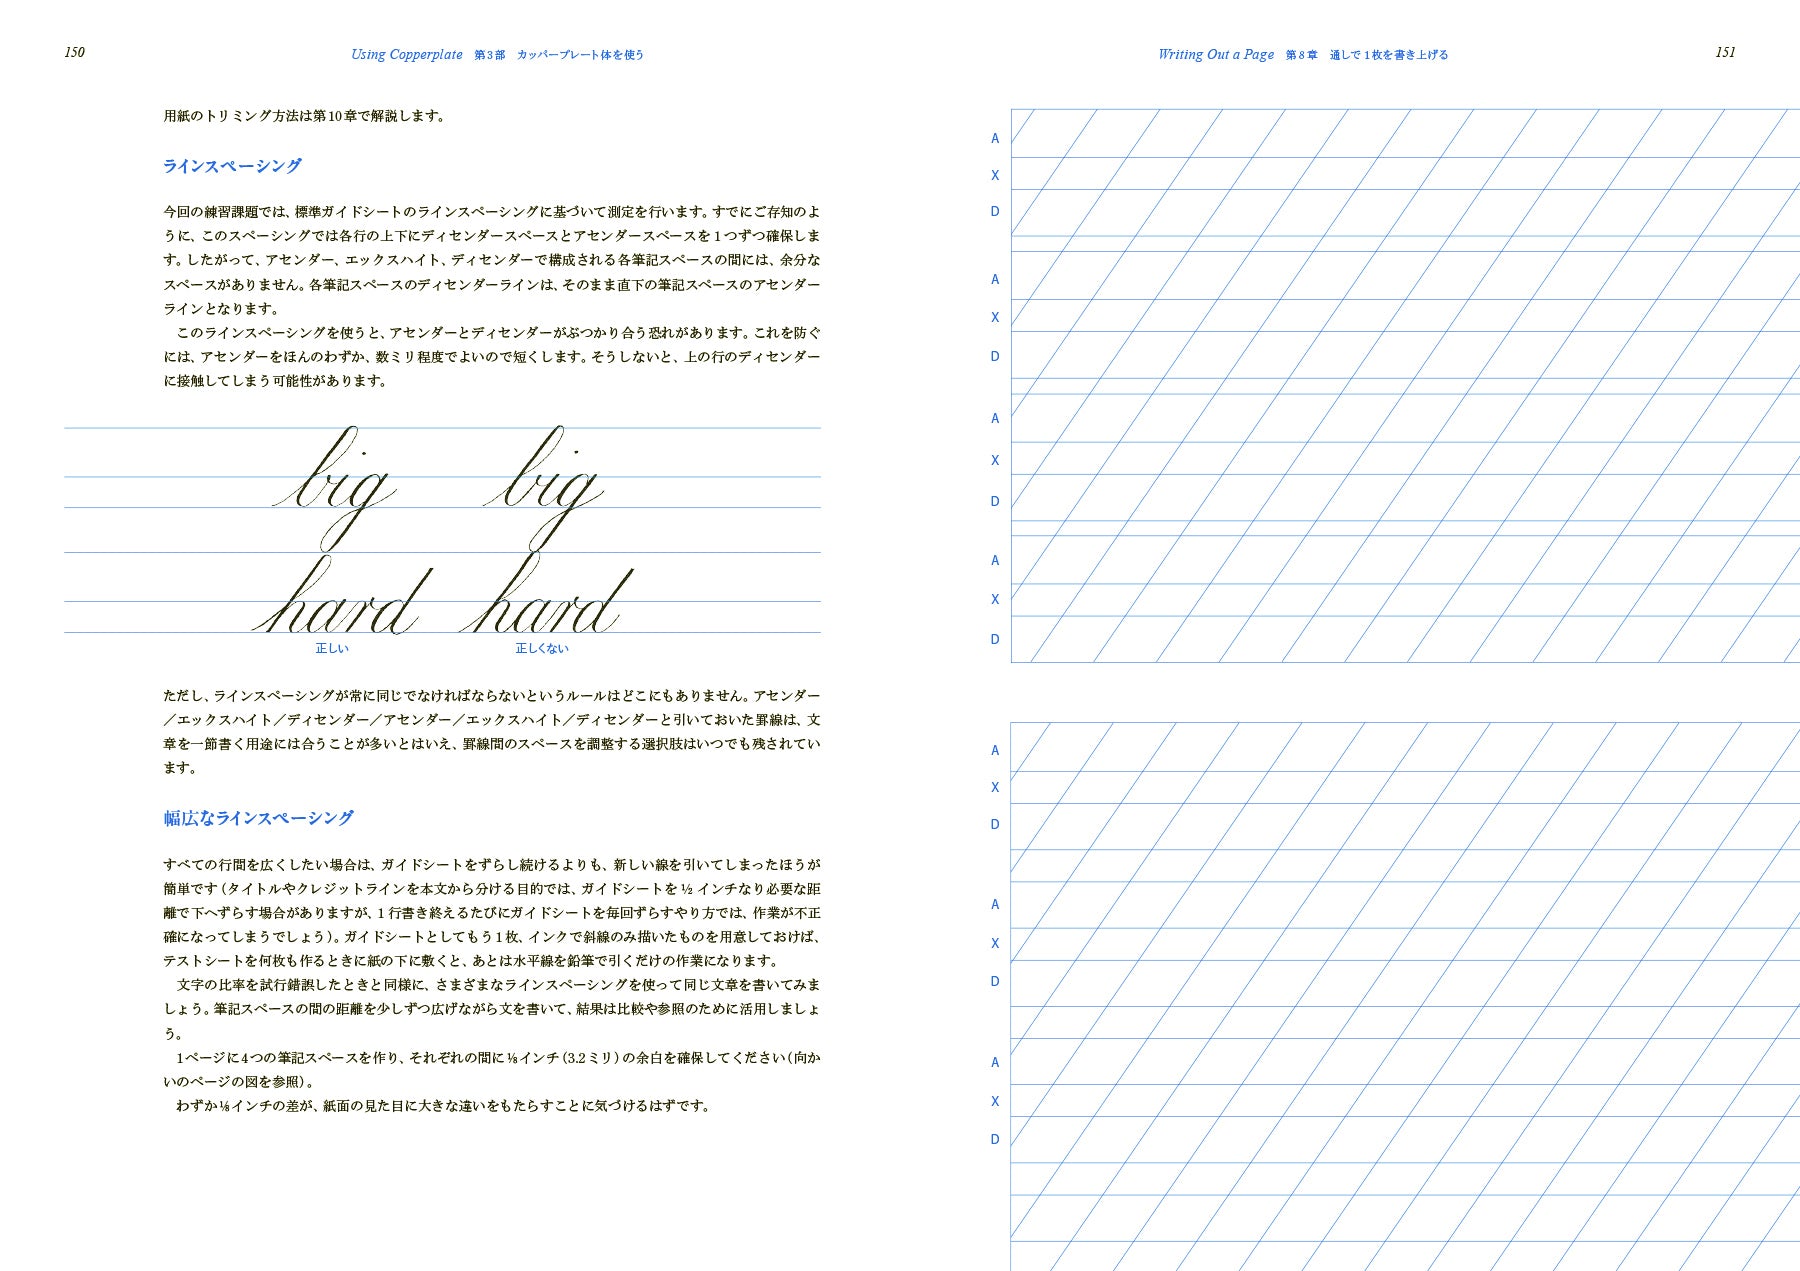 150
Using Copperplate　第3部　カッパープレート体を使う
用紙のトリミング方法は第10章で解説します。
ラインスペーシング
今回の練習課題では、標準ガイドシートのラインスペーシングに基づいて測定を行います。すでにご存知のよ
うに、このスペーシングでは各行の上下にディセンダースペースとアセンダースペースを1つずつ確保しま
す。したがって、アセンダー、エックスハイト、ディセンダーで構成される各筆記スペースの間には、余分な
スペースがありません。各筆記スペースのディセンダーラインは、そのまま直下の筆記スペースのアセンダー
ラインとなります。
　このラインスペーシングを使うと、アセンダーとディセンダーがぶつかり合う恐れがあります。これを防ぐ
には、アセンダーをほんのわずか、数ミリ程度でよいので短くします。そうしないと、上の行のディセンダー
に接触してしまう可能性があります。
big big
hard hard
正しい 正しくない
ただし、ラインスペーシングが常に同じでなければならないというルールはどこにもありません。アセンダー
／エックスハイト／ディセンダー／アセンダー／エックスハイト／ディセンダーと引いておいた罫線は、文
章を一節書く用途には合うことが多いとはいえ、罫線間のスペースを調整する選択肢はいつでも残されてい
ます。
幅広なラインスペーシング
すべての行間を広くしたい場合は、ガイドシートをずらし続けるよりも、新しい線を引いてしまったほうが
簡単です（タイトルやクレジットラインを本文から分ける目的では、ガイドシートを½インチなり必要な距
離で下へずらす場合がありますが、1行書き終えるたびにガイドシートを毎回ずらすやり方では、作業が不正
確になってしまうでしょう）。ガイドシートとしてもう1枚、インクで斜線のみ描いたものを用意しておけば、
テストシートを何枚も作るときに紙の下に敷くと、あとは水平線を鉛筆で引くだけの作業になります。
　文字の比率を試行錯誤したときと同様に、さまざまなラインスペーシングを使って同じ文章を書いてみま
しょう。筆記スペースの間の距離を少しずつ広げながら文を書いて、結果は比較や参照のために活用しましょ
う。
　1ページに4つの筆記スペースを作り、それぞれの間に⅛インチ（3.2ミリ）の余白を確保してください（向か
いのページの図を参照）。
　わずか⅛インチの差が、紙面の見た目に大きな違いをもたらすことに気づけるはずです。
Writing Out a Page　第8章　通しで1枚を書き上げる
151
A
X
D
A
X
D
A
X
D
A
X
D
A
X
D
A
X
D
A
X
D